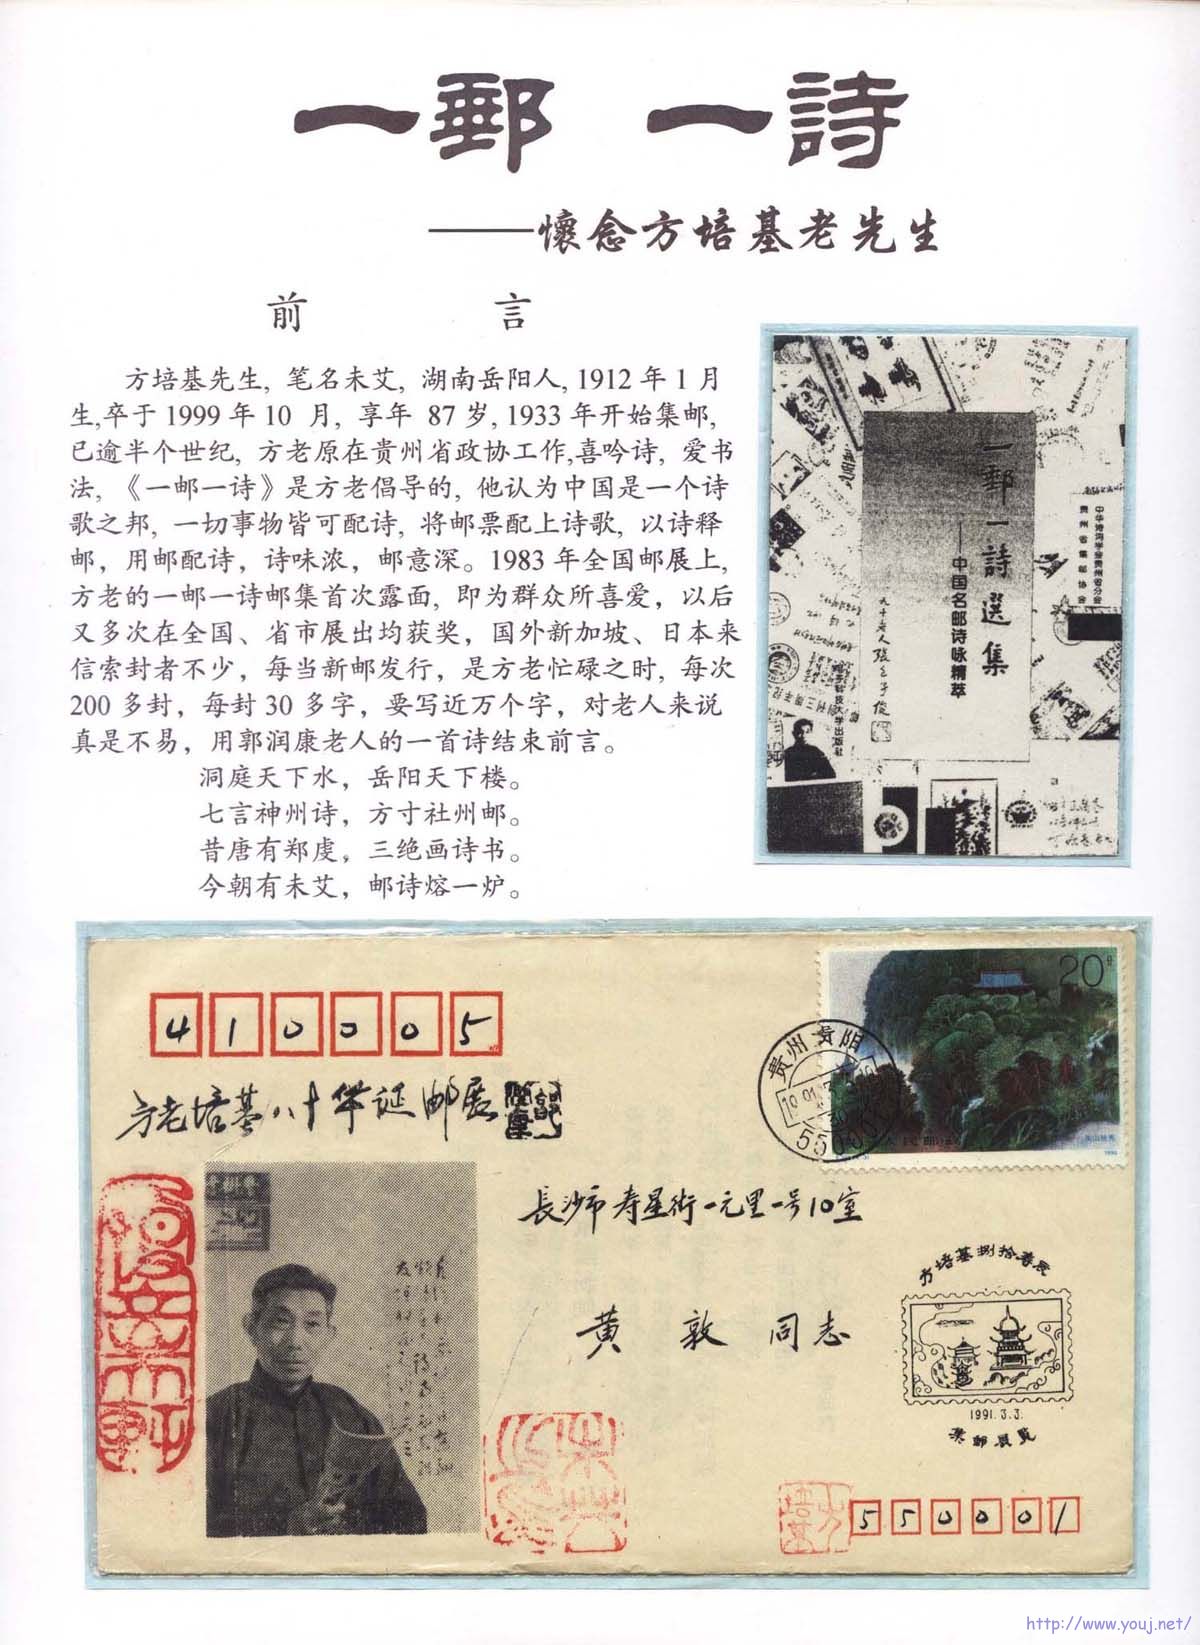 一郵 一詩
——懷念方培基老先生
前 言
方培基先生, 笔名未艾, 湖南岳阳人, 1912 年 1 月
生,卒于 1999 年 10 月, 享年 87 岁, 1933 年开始集邮,
已逾半个世纪, 方老原在贵州省政协工作,喜吟诗, 爱书
法, 《一邮一诗》是方老倡导的, 他认为中国是一个诗
歌之邦, 一切事物皆可配诗, 将邮票配上诗歌, 以诗释
邮, 用邮配诗, 诗味浓, 邮意深。1983 年全国邮展上,
方老的一邮一诗邮集首次露面, 即为群众所喜爱, 以后
又多次在全国、省市展出均获奖, 国外新加坡、日本来
信索封者不少, 每当新邮发行, 是方老忙碌之时, 每次
200 多封, 每封 30 多字, 要写近万个字, 对老人来说
真是不易, 用郭润康老人的一首诗结束前言。
洞庭天下水, 岳阳天下楼。
七言神州诗, 方寸社州邮。
昔唐有郑虔, 三绝画诗书。
今朝有未艾, 邮诗熔一炉。
一郵一詩選集
——中国名邮诗咏精萃
中华诗词学会贵州省分会
贵州省集邮协会
410005
方老培基八十华诞邮展
20分
贵州 贵阳
長沙市寿星街一元里一号10室
黄 敦 同志
方培基捌拾春展
1991.3.3.
集邮展览
550001
http://www.youj.net/